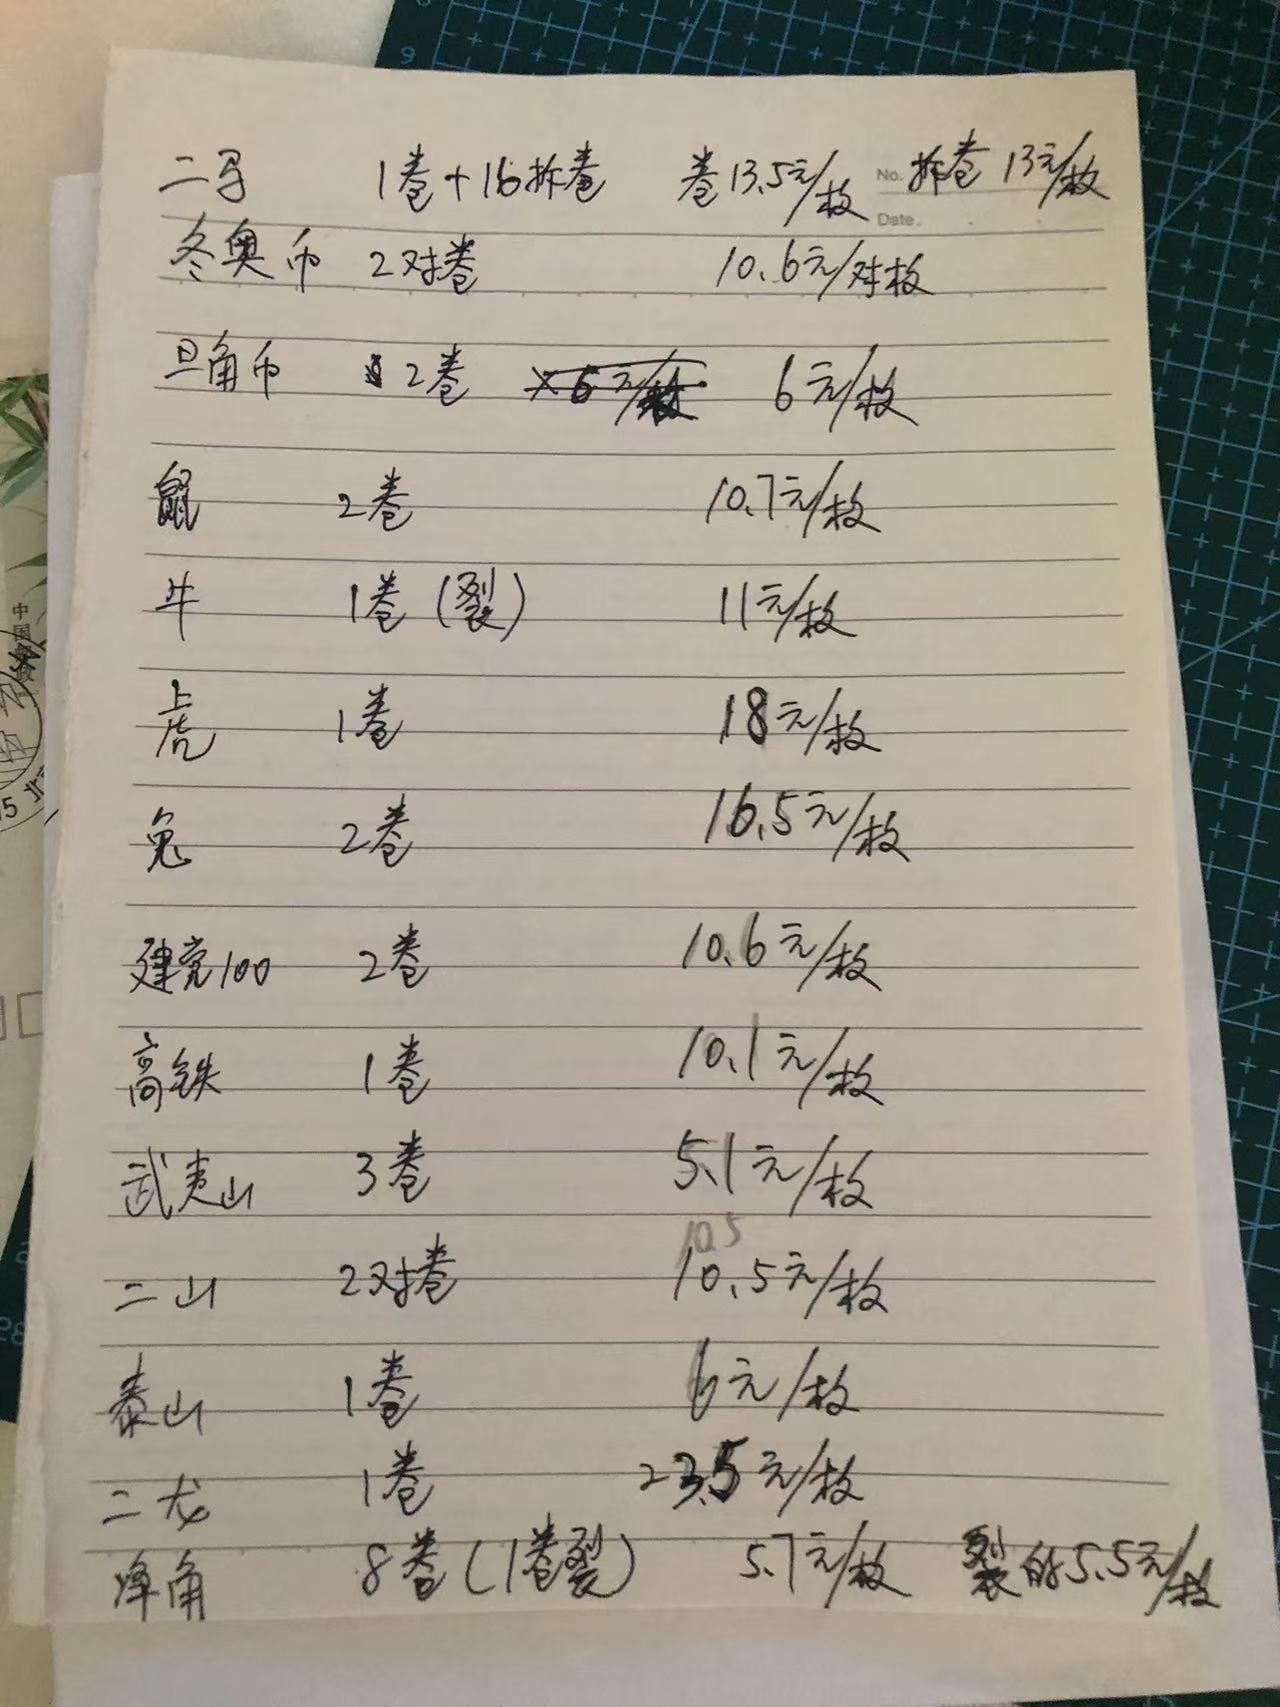 二马 1卷+16拆卷 卷13.5元/枚 拆卷 13元/枚
No.
Date.
冬奥币 2对卷 10.6元/对枚
旦角币 2卷 6元/枚
鼠 2卷 10.7元/枚
牛 1卷(裂) 11元/枚
虎 1卷 18元/枚
兔 2卷 16.5元/枚
建党100 2卷 10.6元/枚
高铁 1卷 10.1元/枚
武夷山 3卷 5.1元/枚
10.5
二山 2对卷 10.5元/枚
泰山 1卷 6元/枚
二龙 1卷 23.5元/枚
净角 8卷(1卷裂) 5.7元/枚 裂的5.5元/枚
9
中国